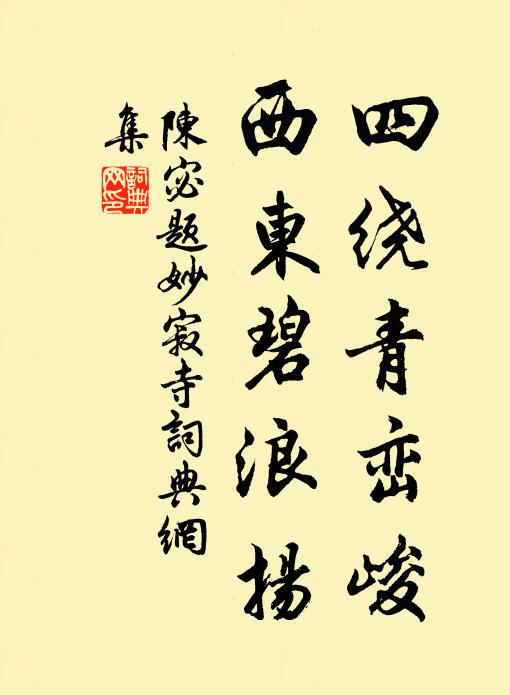 四绕青峦峻
西東碧浪揚
陳宓題妙寂寺詞典網
集
詞典
网印